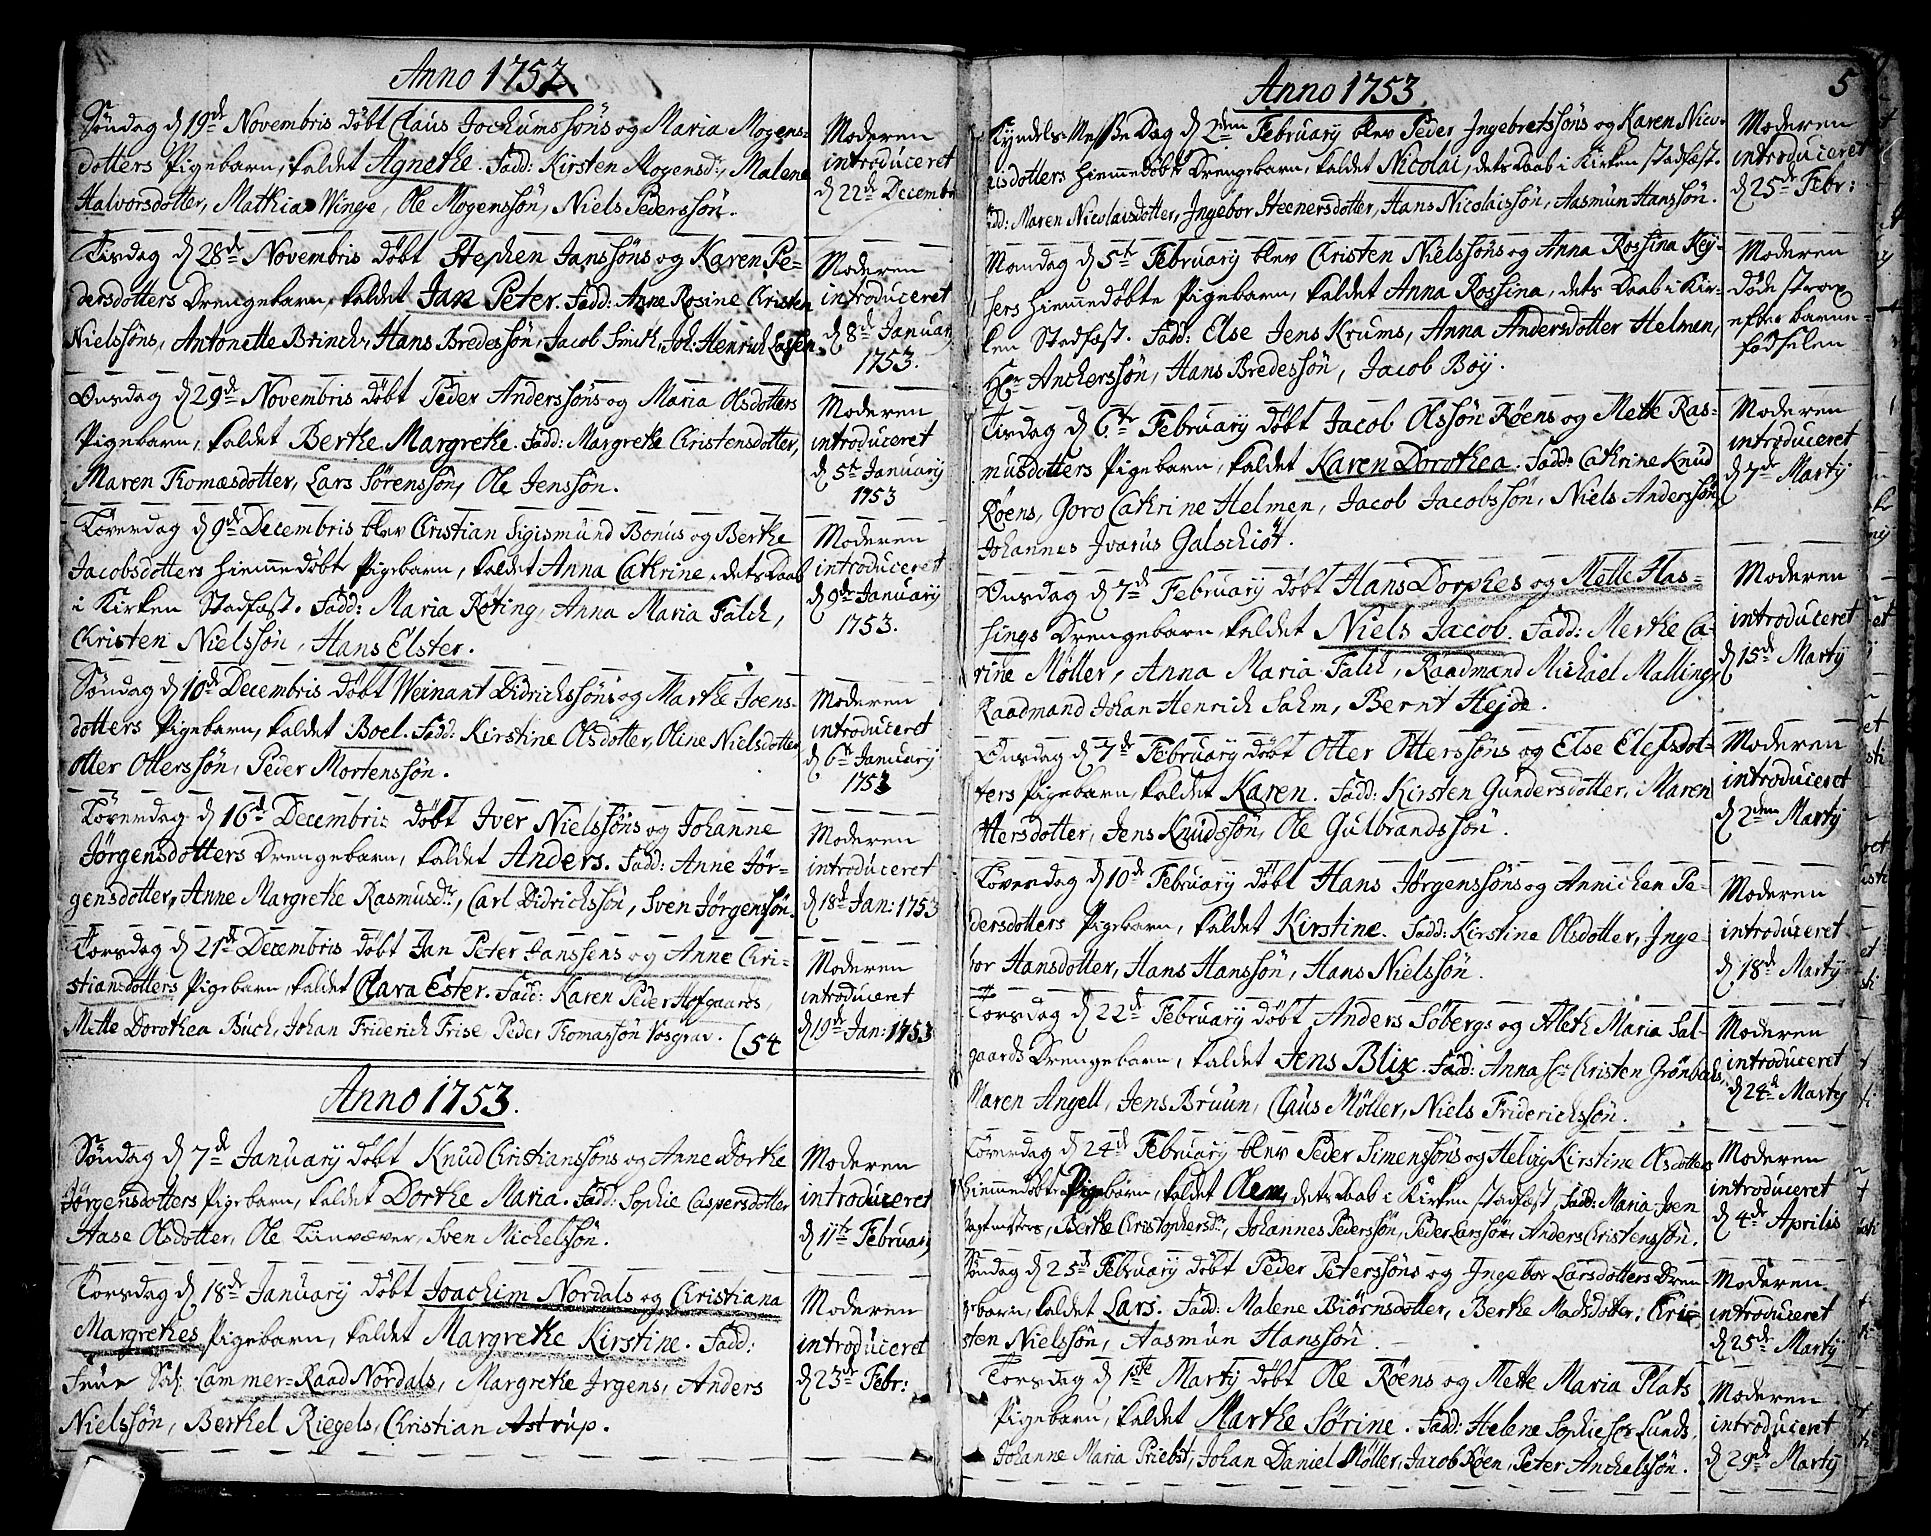 Anno 1752
Søndag d 19de Novembris døbt Claus Jochumssöns og Maria Mogens-
dotters Pigebarn, kaldet Agnethe. Fadd: Kirsten Mogensdr, Malene
Halvorsdotter, Mathias Winge, Ole Mogenssön, Niels Pederssön.
Moderen
introduceret
d 22de Decembr
Tisdag d 28de Novembris døbt Stephen Janssöns og Karen Pe-
dersdotters Drengebarn, kaldet Jan Peter. Fadd: Anne Rosine Christen
Nielssöns, Antonette Brinch, Hans Bredessön, Jacob Smith, Joh: Henrich Lassen.
Moderen
introduceret
d 8de Januar
1753.
Onsdag d 29de Novembris døbt Peder Anderssöns og Maria Olsdotters
Pigebarn, kaldet Berthe Margrethe. Fadd: Margrethe Christensdotter,
Maren Thomæsdotter, Lars Sørenssön, Ole Jenssön.
Moderen
introduceret
d 5te Januarij
1753
Löverdag d 9de Decembris blev Christian Sigismund Bonus og Berthe
Jacobsdotters hiemmedøbte Pigebarn, kaldet Anna Cathrine, dets Daab
i Kirken Stadfæst. Fadd: Maria Röting, Anna Maria Falch,
Christen Nielssön, Hans Elster.
Moderen
introduceret
d 9de Januarij
1753.
Søndag d 10de Decembris døbt Weinant Didrichssöns og Marthe Joens-
dotters Pigebarn, kaldet Boel. Fadd: Kirstine Olsdotter, Oline Nielsdotter,
Otter Otterssön, Peder Mortenssön.
Moderen
introduceret
d 6te Januarij
1753
Löverdag d 16de Decembris døbt Iver Nielssöns og Johanne
Jørgensdotters Drengebarn, kaldet Anders. Fadd: Anne Jør-
gensdotter, Anne Margrethe Rasmusdr, Carl Didrichssön, Sven Jørgenssön.
Moderen
introduceret
d 18de Jan: 1753
Torsdag d 21de Decembris døbt Jan Peter Janssens og Anne Chri-
stiansdotters Pigebarn, kaldet Clara Ester. Fadd: Karen Peder Hofgaards,
Mette Dorothea Buch, Johan Friderich Frise, Peder Thomassön Vosgrav. (54
Moderen
introduceret
d 19de Jan: 1753
Anno 1753.
Søndag d 7de Januarij døbt Knud Christianssöns og Anne Dorthe
Jørgensdotters Pigebarn, kaldet Dorthe Maria. Fadd: Sophie Caspersdotter
Aase Olsdotter, Ole Linvæver, Sven Michelssön.
Moderen
introduceret
d 11te Februarij
Torsdag d 18de Januarij døbt Joachim Nordals og Christiana
Margrethes Pigebarn, kaldet Margrethe Kirstine. Fadd:
Frue Sal: Cammer-Raad Nordals, Margrethe Irgens, Anders
Nielssön, Berthel Riegels, Christian Astrup.
Moderen
introduceret
d 23de Febr:
Anno 1753.
5
Kyndels-Messe Dag d 2den Februarij blev Peder Ingebretssöns og Karen Nico-
laisdotters hiemmedøbte Drengebarn, kaldet Nicolai, dets Daab i Kirken Stadfæst.
Fadd: Maren Nicolaisdotter, Ingebor Steenersdotter, Hans Nicolaissön, Aasmun Hanssön.
Moderen
introduceret
d 25de Febr:
Mandag d 5te Februarij blev Christen Nielssöns og Anna Rossina Key-
sers hiemmedøbte Pigebarn, kaldet Anna Rossina, dets Daab i Kir-
ken Stadfæst. Fadd: Else Jens Krums, Anna Andersdotter Helmen,
Hr Anckerssön, Hans Bredessön, Jacob Boy.
Moderen
döde strax
efter barne-
födselen
Tisdag d 6te Februarij døbt Jacob Olssön Röens og Mette Ras-
musdotters Pigebarn, kaldet Karen Dorothea. Fadd: Cathrine Knud
Röens, Goro Cathrine Helmen, Jacob Jacobssön, Niels Anderssön,
Johannes Ivarus Galschiöt.
Moderen
introduceret
d 7de Martij
Onsdag d 7de Februarij døbt Hans Dorphes og Mette Has-
sings Drengebarn, kaldet Niels Jacob. Fadd: Merthe Ca-
rine Møller, Anna Maria Falch, Raadmand Michael Malling,
Raadmand Johan Henrich Sahm, Bernt Hejde.
Moderen
introduceret
d 15de Martij
Onsdag d 7de Februarij døbt Otter Otterssöns og Else Elefsdot-
ters Pigebarn, kaldet Karen. Fadd: Kirsten Gundersdotter, Maren
Ottersdotter, Jens Knudssön, Ole Gulbrandssön.
Moderen
introduceret
d 2den Martij
Löverdag d 10de Februarij døbt Hans Jørgenssöns og Annichen Pe-
dersdotters Pigebarn, kaldet Kirstine. Fadd: Kirstine Olsdotter, Inge-
bor Hansdotter, Hans Hanssön, Hans Nielssön.
Moderen
introduceret
d 18de Martij
Torsdag d 22de Februarij døbt Anders Søbergs og Aleth Maria Sal-
gaards Drengebarn, kaldet Jens Blix. Fadd: Anna Sr Christen Grönbechs,
Maren Angell, Jens Bruun, Claus Møller, Niels Friderichssön.
Moderen
introduceret
d 24de Martij
Löverdag d 24de Februarij blev Peder Simenssöns og Helvig Kirstine Olsdotters
hiemmedøbte Pigebarn, kaldet Olem, dets Daab i Kirken stadfæst, Fadd: Maria Joen
Berthe Christophersdr, Johannes Pederssön, Peder Larssön, Anders Christenssön.
Moderen
introduceret
d 4de Aprilis
Søndag d 25de Februarij døbt Peder Peterssöns og Ingebor Larsdotters Dren-
gebarn, kaldet Lars. Fadd: Malene Biörnsdotter, Berthe Madsdotter, Chri-
sten Nielssön, Aasmun Hanssön.
Moderen
introduceret
d 25de Martij
Torsdag d 1ste Martij døbt Ole Röens og Mette Maria Plats
Pigebarn, kaldet Marthe Sørine. Fadd: Helene Sophie Sr Lunds,
Johanne Maria Priebst, Johan Daniel Møller, Jacob Röen, Peter Anchelssön.
Moderen
introduceret
d 29de Martij